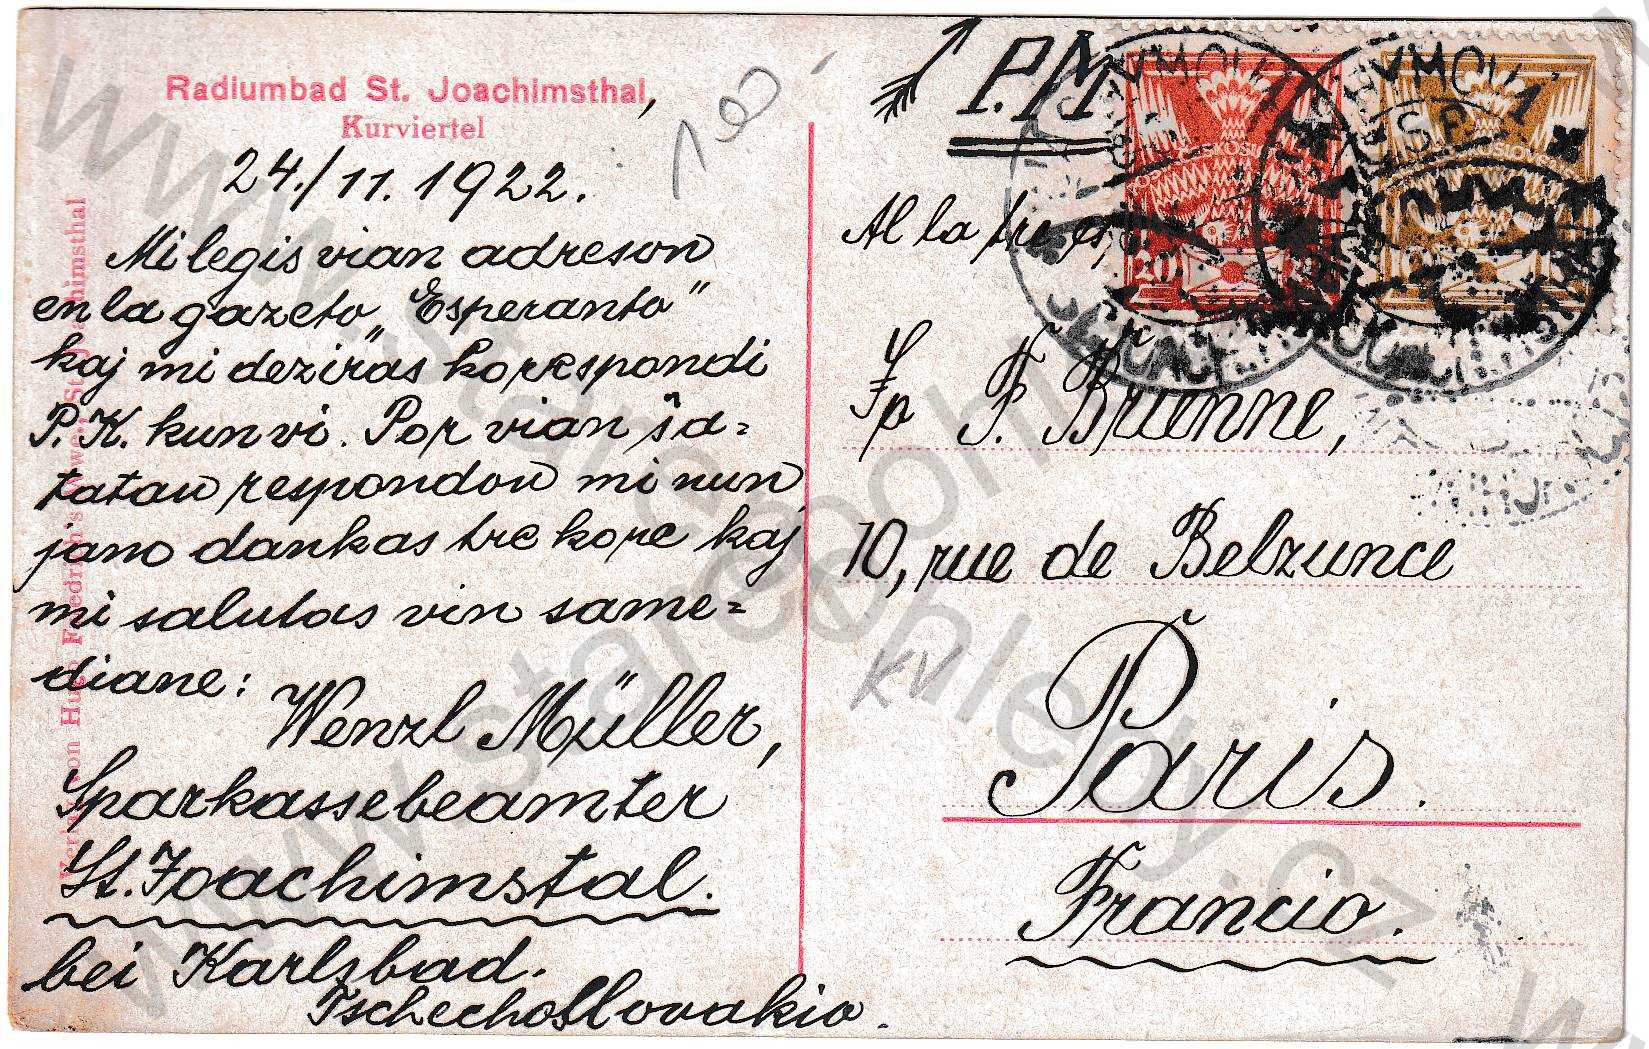 Radiumbad St. Joachimsthal,
Kurviertel
24./11. 1922.
Mi legis vian adreson
en la gazeto "Esperanto"
kaj mi deziras korrespondi
P. K. kun vi. Por vian ŝa-
tatan respondon mi nun
jano dankas tre kore kaj
mi salutas vin same-
diane:
Wenzl Müller,
Sparkassebeamter
St. Joachimstal.
bei Karlsbad.
Tschechoslovakio.
P.M.
Al la
F. Brienne,
10, rue de Belzunce
Paris.
Francio.
KV
www.starepohledy.cz